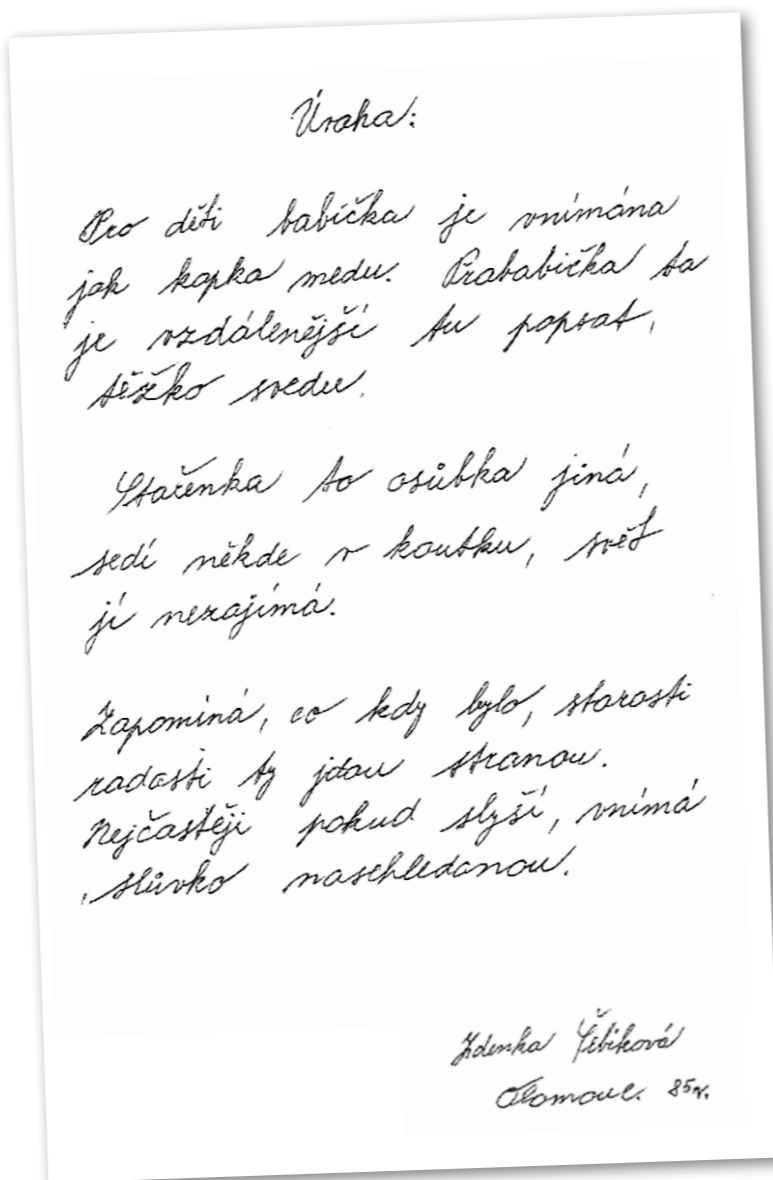 Úvaha:
Pro děti babička je vnímána
jak kapka medu. Prababička ta
je vzdálenější tu popsat,
těžko svedu.
Stařenka to osůbka jiná,
sedí někde v koutku, svět
jí nezajímá.
Zapomíná, co kdy bylo, starosti
radosti ty jdou stranou.
Nejčastěji pokud slyší, vnímá
slůvko naschledanou.
Zdenka
Olomouc. 85r.